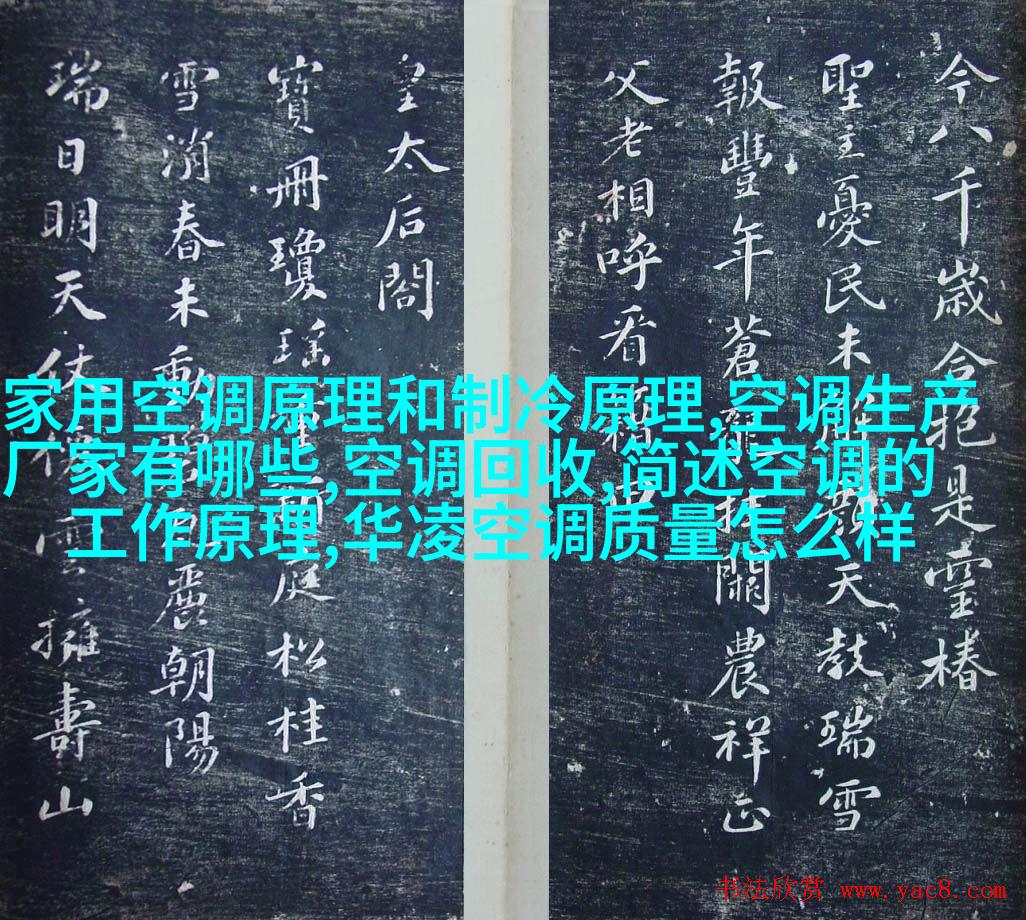 今八千歲合抱是靈椿
聖主憂民未天教瑞雪
報豐年蒼闕農祥正
父老相呼看
皇太后閣
寶冊瓊瑤重庭松桂香
雪消春未動麗朝陽
瑞日明天仗雲擁壽山
家用空调原理和制冷原理,空调生产
厂家有哪些,空调回收,简述空调的
工作原理,华凌空调质量怎么样
书法欣赏 www.yac8.com